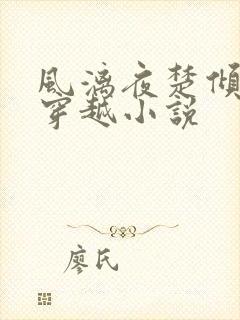 風漓夜楚傾
穿越小説
廖氏